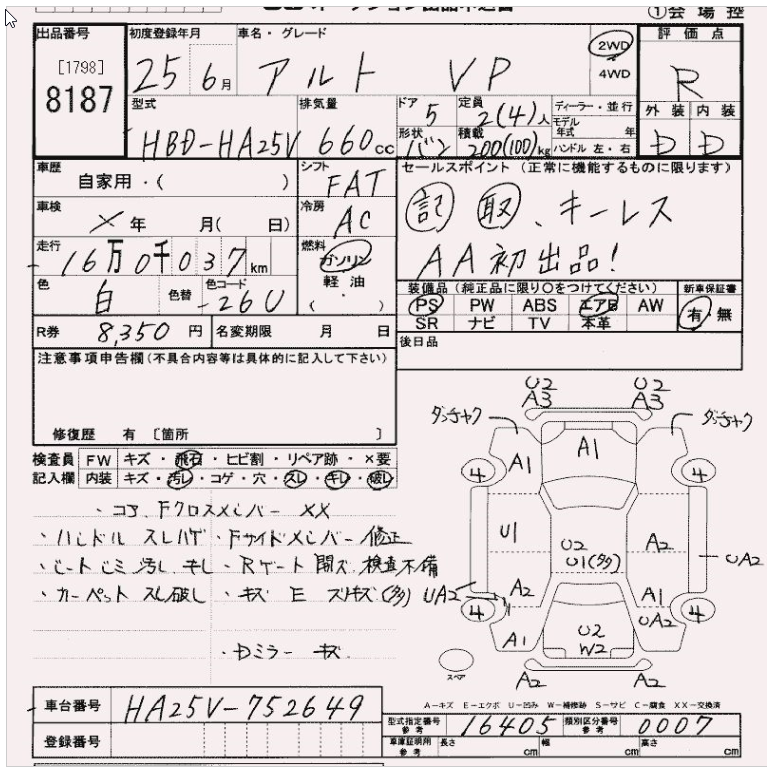 ①会場控
出品番号
[1798]
8187
初度登録年月
25 6月
車名・グレード
アルト VP
2WD
4WD
評価点
R
外装 内装
D D
型式
HBD-HA25V
排気量
660cc
ドア
5
定員
2(4)人
形状
バン
積載
200(100)kg
ディーラー・並行
モデル年式 年
ハンドル 左・右
車歴
自家用・( )
シフト
FAT
車検
× 年 月( 日)
冷房
AC
走行
16万0千037km
燃料
ガソリン
軽油
( ・ )
色
白
色替
色コード
-26U
R券 8,350円
名変期限 月 日
セールスポイント(正常に機能するものに限ります)
記 取、キーレス
AA初出品!
装備品(純正品に限り○をつけてください)
PS PW ABS エアB AW
SR ナビ TV 本革
新車保証書
有・無
後日品
注意事項申告欄(不具合内容等は具体的に記入して下さい)
修復歴 有 〔箇所 〕
検査員記入欄
FW キズ・飛石・ヒビ割・リペア跡・×要
内装 キズ・汚レ・コゲ・穴・スレ・キレ・破レ
・コア、Fクロスメンバー XX
・ハンドル スレハゲ ・Fサイドメンバー 修正
・シートシミ汚レ キレ ・Rゲート 開ズ、検査不備
・カーペット スレ破レ ・キズ E スリキズ(多)
・Dミラー キズ
U2 U2
A3 A3
A1
A1
4 4
U1
U2
U1(多)
A2
UA2
UA2
A2
A1
4 4
UA2
A1
U2
W2
スペア
A2 A2
A−キズ E−エクボ U−凹み W−補修跡 S−サビ C−腐食 XX−交換済
車台番号 HA25V-752649
登録番号
型式指定番号 参考 16405
類別区分番号 参考 0007
車庫証明用 参考
長さ cm
幅 cm
高さ cm